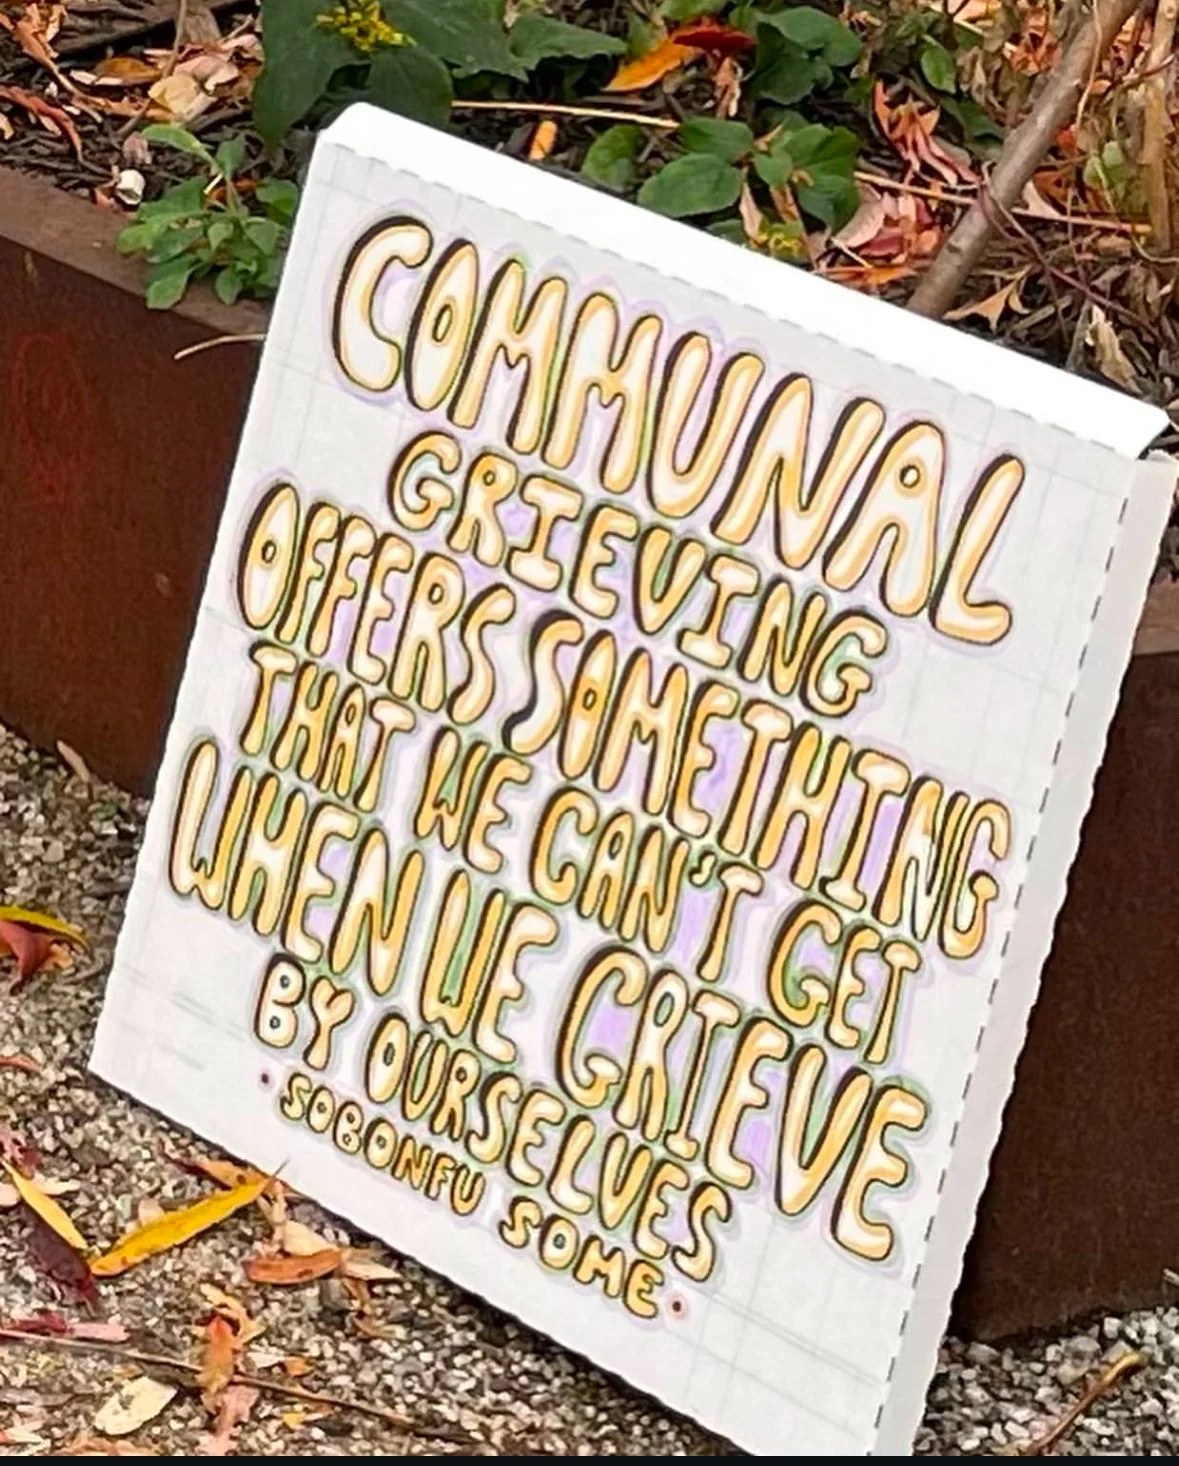 COMMUNAL
GRIEVING
OFFERS SOMETHING
THAT WE CAN'T GET
WHEN WE GRIEVE
BY OURSELVES
• SOBONFU SOME •